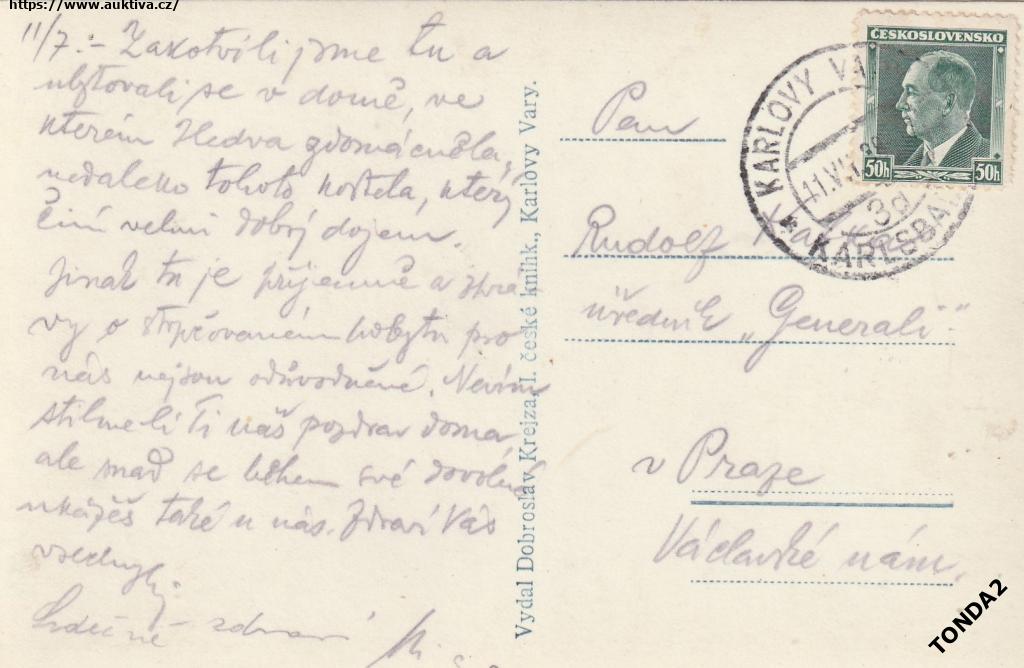 https://www.auktiva.cz/
11/7. – Zakotvili jsme tu a
ubytovali se v domě, ve
kterém Hedva zdomácněla,
nedaleko tohoto kostela, který
činí velmi dobrý dojem.
Jinak tu je příjemně a zprá-
vy o ztrpčovaném pobytu pro
nás nejsou odůvodněné. Nevím
stihne-li Ti náš pozdrav doma
ale snad se během své dovolené
ukážeš také u nás. Zdraví Vás
všechny
Srdečně zdraví
Vydal Dobroslav Krejza, I. české knihk., Karlovy Vary.
ČESKOSLOVENSKO
50h 50h
KARLOVY VARY
11.VII.
3d
KARLSBAD
Pan
Rudolf
úředník „Generali"
v Praze
Václavské nám.
TONDA2